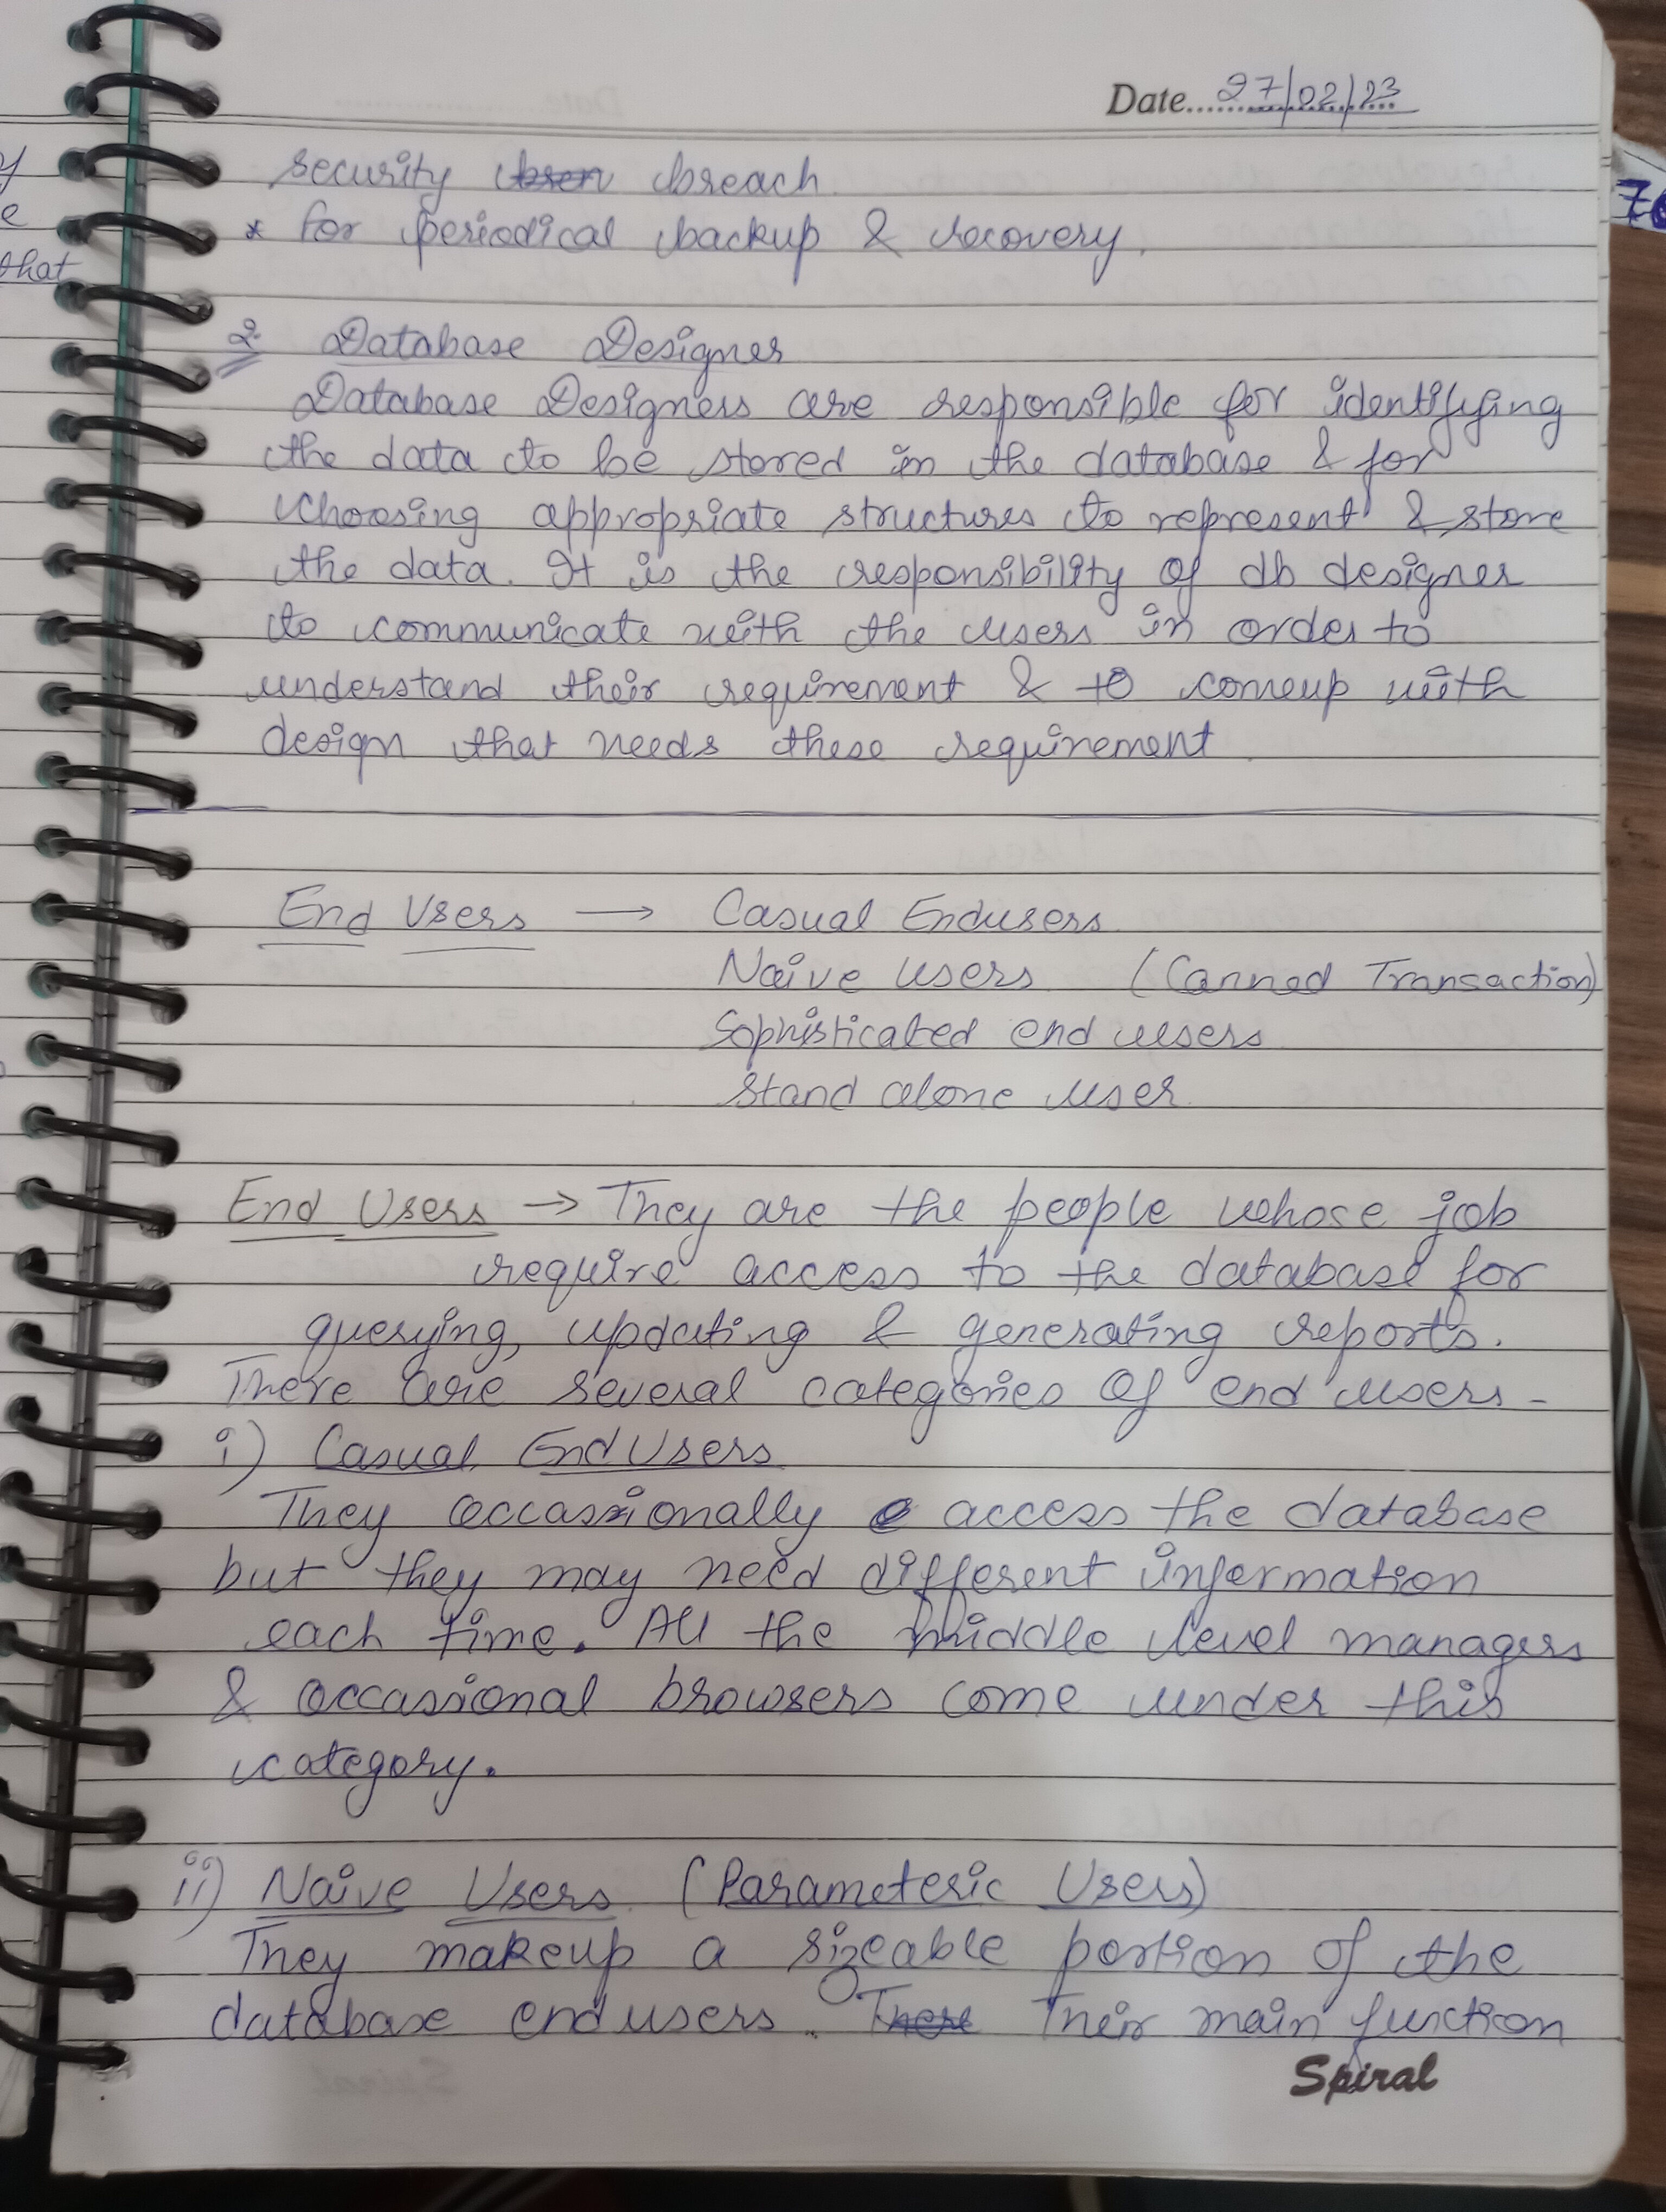 Date 27/02/23
security breach
* for periodical backup & recovery.
2. Database Designer
Database Designers are responsible for identifying
the data to be stored in the database & for
choosing appropriate structures to represent & store
the data. It is the responsibility of db designer
to communicate with the users in order to
understand their requirement & to comeup with
design that needs these requirement
End Users → Casual Endusers
Naive users (Canned Transaction)
Sophisticated end users
stand alone user
End Users → They are the people whose job
require access to the database for
querying, updating & generating reports.
There are several categories of end users -
i) Casual End Users
They occassionally access the database
but they may need different information
each time. All the middle level managers
& occassional browsers come under this
category.
ii) Naive Users (Parameteric Users)
They makeup a sizeable portion of the
database end users. Their main function
Spiral
that